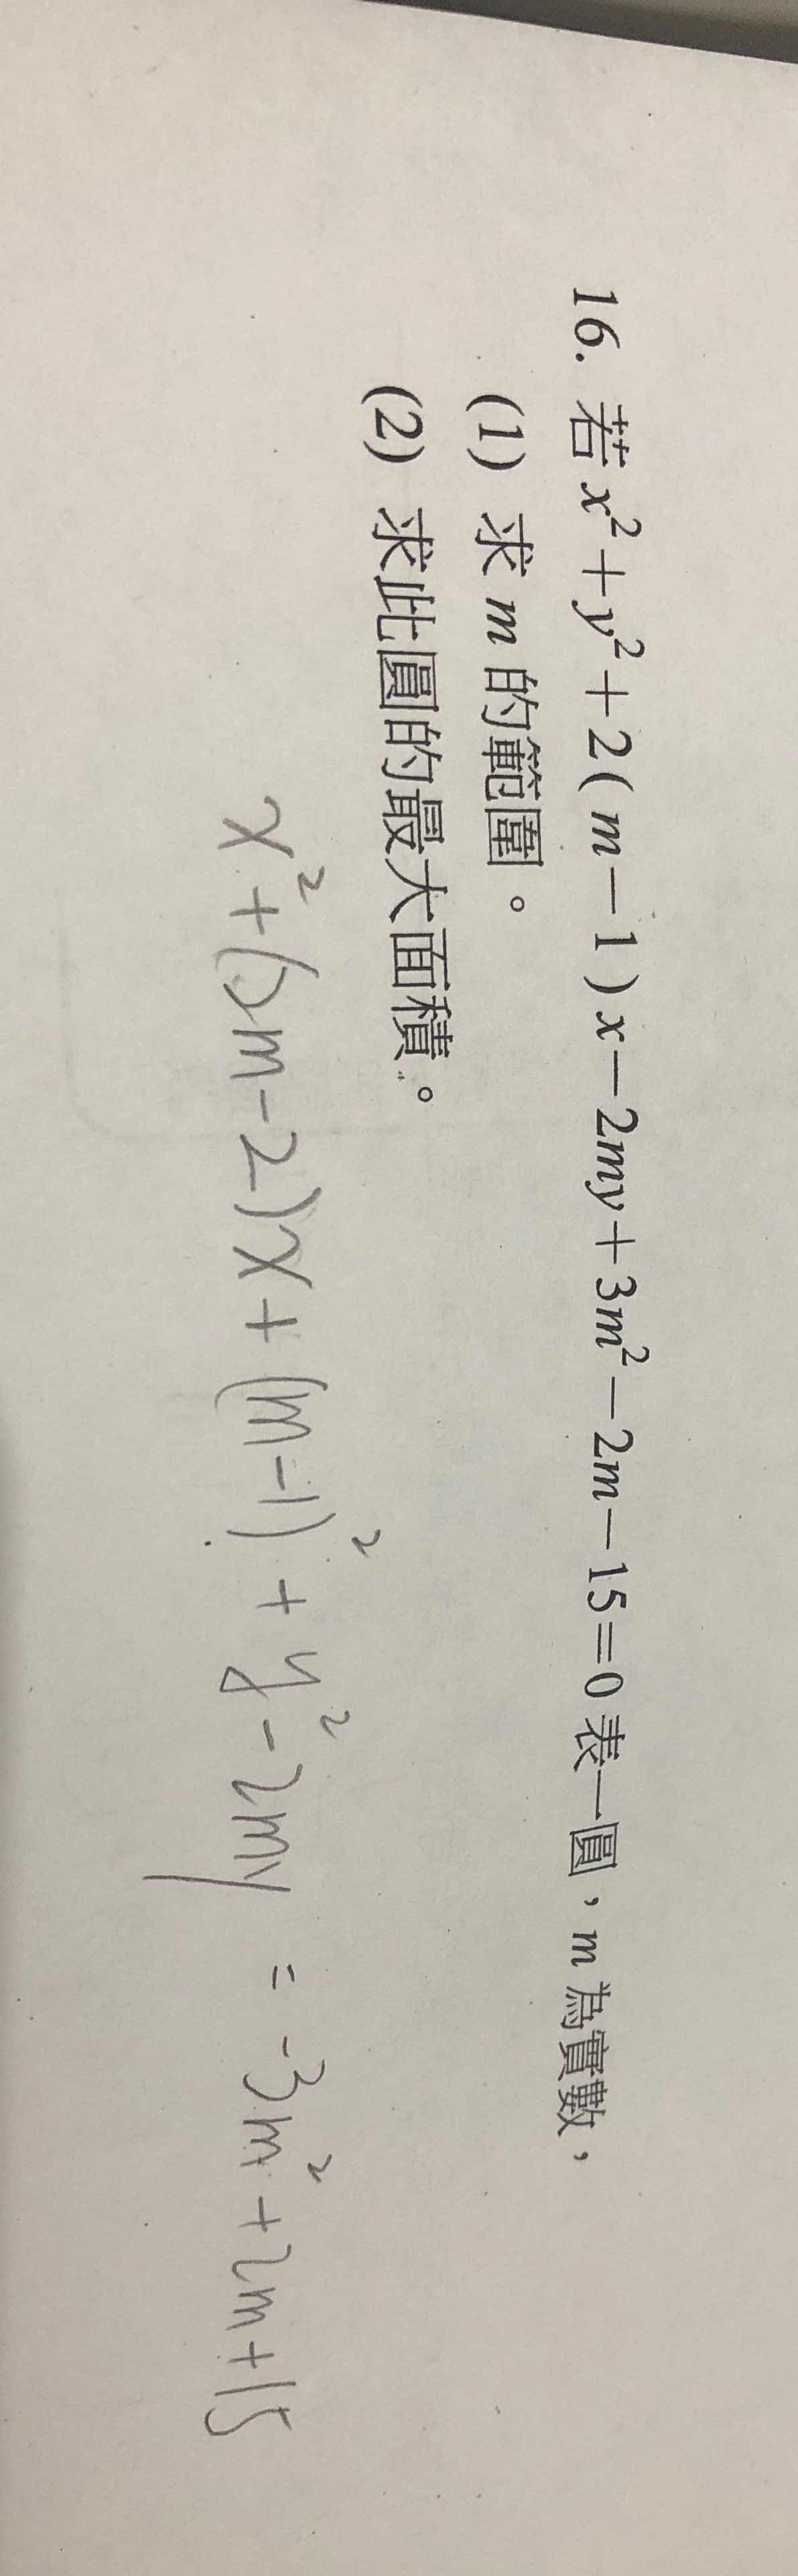 16. 若 x²+y²+2(m-1)x-2my+3m²-2m-15=0 表一圓，m 為實數，
(1) 求 m 的範圍。
(2) 求此圓的最大面積。
x²+(2m-2)x+(m-1)²+y²-2my = -3m²+2m+15